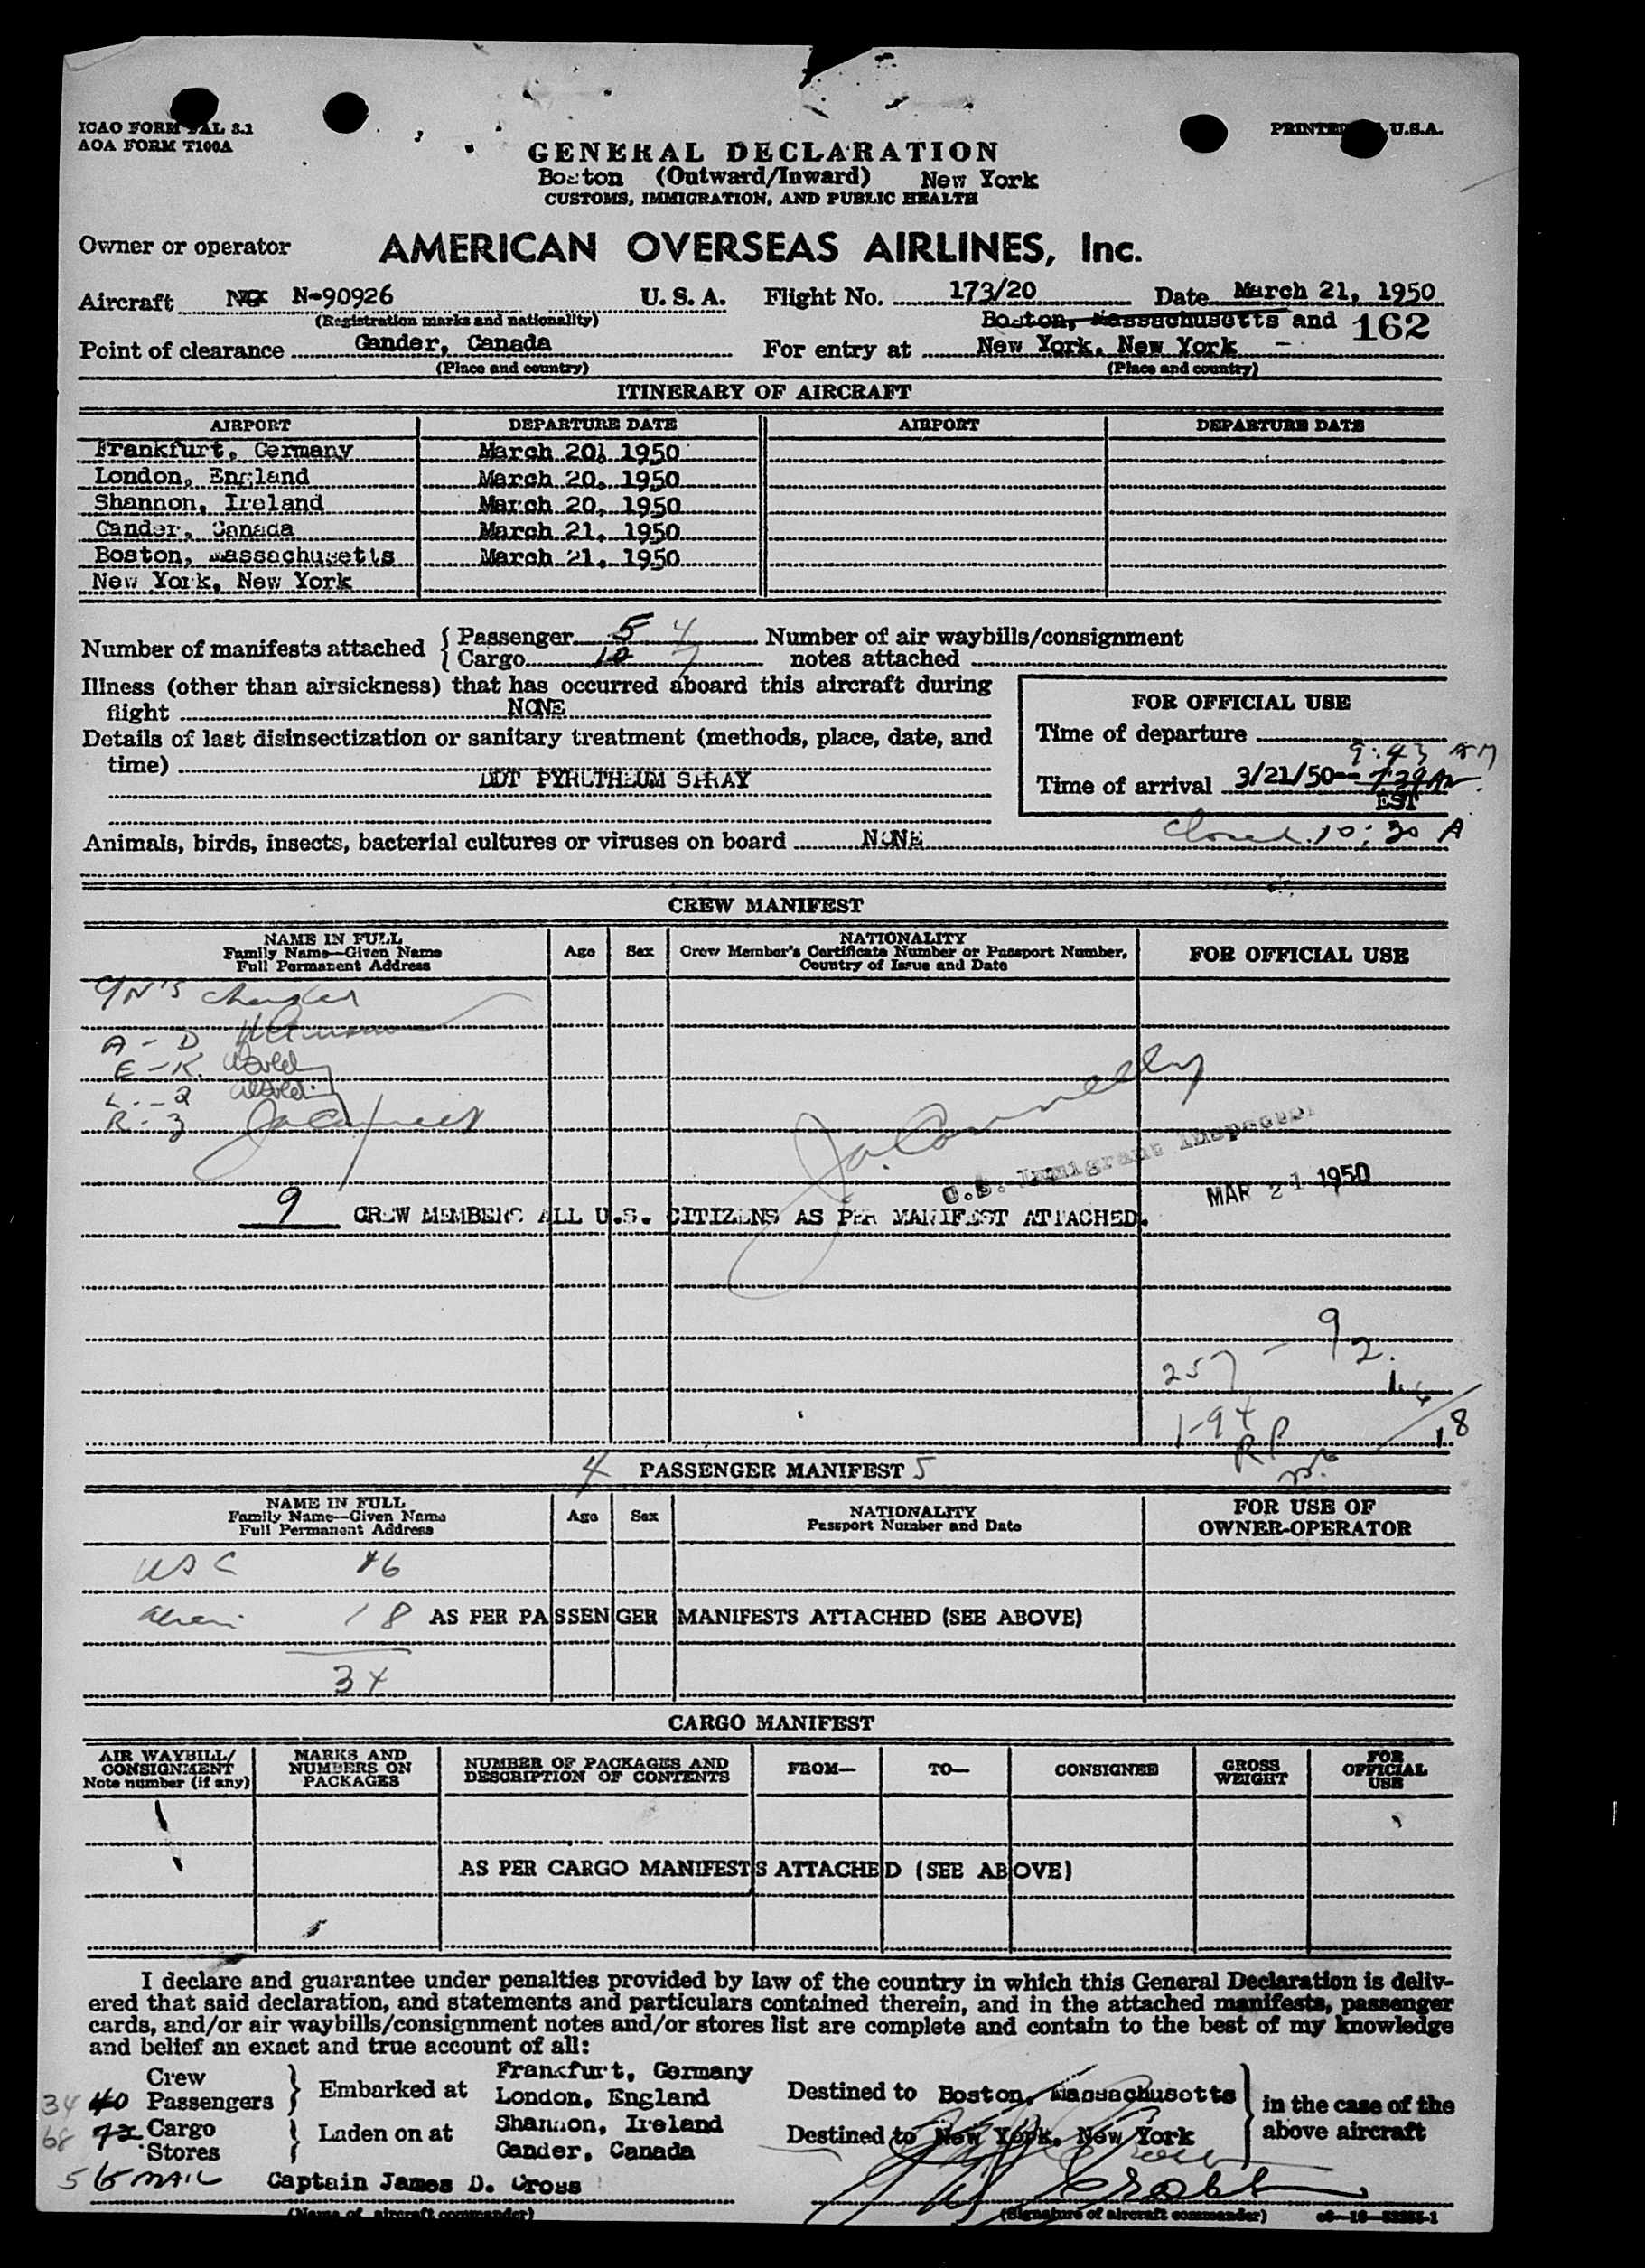 ICAO FORM FAL 3.1
AOA FORM T100A
PRINTED U.S.A.
GENERAL DECLARATION
Boston (Outward/Inward) New York
CUSTOMS, IMMIGRATION, AND PUBLIC HEALTH
Owner or operator AMERICAN OVERSEAS AIRLINES, Inc.
Aircraft N-90926 U. S. A. Flight No. 173/20 Date March 21, 1950
(Registration marks and nationality) Boston, Massachusetts and 162
Point of clearance Gander, Canada For entry at New York, New York
(Place and country) (Place and country)
ITINERARY OF AIRCRAFT
AIRPORT DEPARTURE DATE AIRPORT DEPARTURE DATE
Frankfurt, Germany March 20, 1950
London, England March 20, 1950
Shannon, Ireland March 20, 1950
Gander, Canada March 21, 1950
Boston, Massachusetts March 21, 1950
New York, New York
Number of manifests attached { Passenger 5 4 Number of air waybills/consignment
Cargo 12 7 notes attached
Illness (other than airsickness) that has occurred aboard this aircraft during
flight NONE
FOR OFFICIAL USE
Details of last disinsectization or sanitary treatment (methods, place, date, and
time)
DDT PYRUTHEUM SPRAY
Time of departure
9:43 AM
Time of arrival 3/21/50-- 7:29 AM
EST
Closed 10:30 A
Animals, birds, insects, bacterial cultures or viruses on board NONE
CREW MANIFEST
NAME IN FULL
Family Name—Given Name
Full Permanent Address
Age Sex
NATIONALITY
Crew Member's Certificate Number or Passport Number,
Country of Issue and Date
FOR OFFICIAL USE
A - D
E - K
L - Q
R - Z
J. A. Connelly
U.S. Immigrant Inspector
MAR 21 1950
9 CREW MEMBERS ALL U.S. CITIZENS AS PER MANIFEST ATTACHED.
257 - 9
2.
I-94
18
4 PASSENGER MANIFEST 5
NAME IN FULL
Family Name—Given Name
Full Permanent Address
Age Sex
NATIONALITY
Passport Number and Date
FOR USE OF
OWNER-OPERATOR
USC 16
alien 18 AS PER PASSENGER MANIFESTS ATTACHED (SEE ABOVE)
34
CARGO MANIFEST
AIR WAYBILL/
CONSIGNMENT
Note number (if any)
MARKS AND
NUMBERS ON
PACKAGES
NUMBER OF PACKAGES AND
DESCRIPTION OF CONTENTS
FROM— TO— CONSIGNEE
GROSS
WEIGHT
FOR
OFFICIAL
USE
AS PER CARGO MANIFESTS ATTACHED (SEE ABOVE)
I declare and guarantee under penalties provided by law of the country in which this General Declaration is deliv-
ered that said declaration, and statements and particulars contained therein, and in the attached manifests, passenger
cards, and/or air waybills/consignment notes and/or stores list are complete and contain to the best of my knowledge
and belief an exact and true account of all:
Crew
34 40 Passengers } Embarked at
68 72 Cargo
Stores } Laden on at
Frankfurt, Germany
London, England
Shannon, Ireland
Gander, Canada
Destined to Boston, Massachusetts
Destined to New York, New York
in the case of the
above aircraft
MAIL Captain James D. Cross
(Name of aircraft commander) (Signature of aircraft commander)